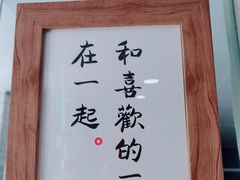 和喜歡的一
在一起